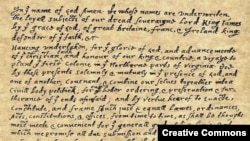 In yͤ name of god Amen. We whose names are underwriten,
the loyall subjects of our dread soveraigne Lord King James
by yͤ grace of god, of great Britaine, franc, & Ireland king,
defendor of yͤ faith, &c
Haveing undertaken, for yͤ glorie of god, and advancemente
of yͤ christian faith and honour of our king & countrie, a voyage to
plant yͤ first colonie in yͤ Northerne parts of Virginia. doe
by these presents solemnly & mutualy in yͤ presence of god, and
one of another, covenant, & combine our selves togeather into a
civill body politick, for
ordering & preservation &
of yͤ ends aforesaid; and by vertue hearof to enacte,
constitute, and frame such just & equall lawes, ordinances,
Acts, constitutions, & offices, from time to time, as shall be thought
most meete & convenient for yͤ generall
which we promise all due submission and
Creative Commons